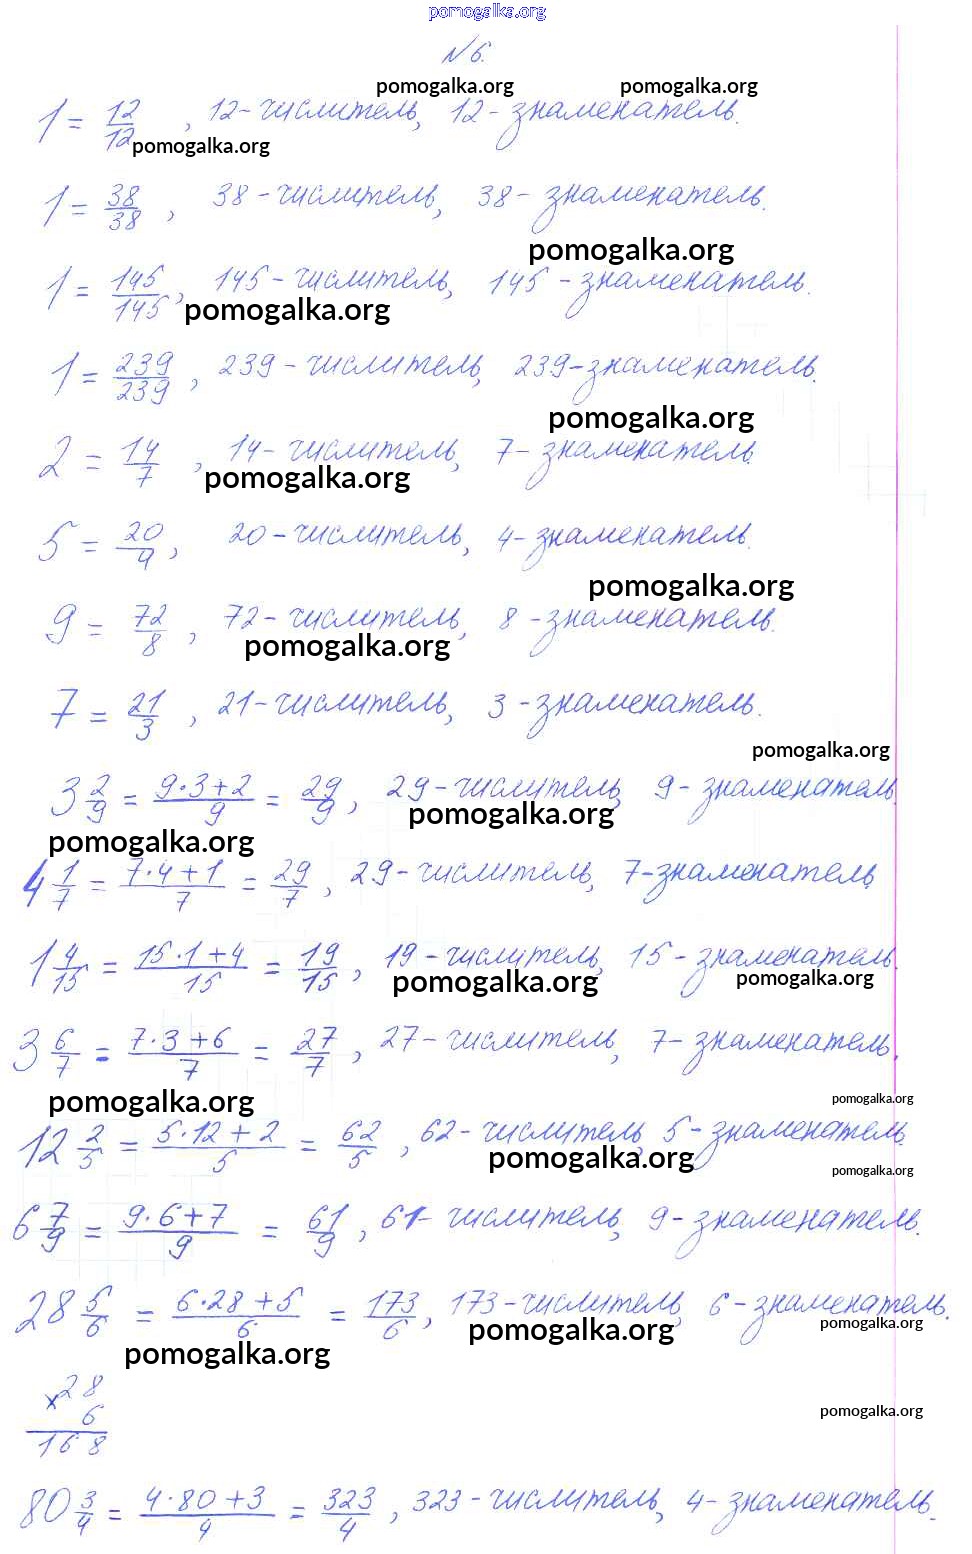 pomogalka.org
№ 6.
pomogalka.org pomogalka.org
1 = 12/12, 12 - числитель, 12 - знаменатель.
pomogalka.org
1 = 38/38, 38 - числитель, 38 - знаменатель.
pomogalka.org
1 = 145/145, 145 - числитель, 145 - знаменатель.
pomogalka.org
1 = 239/239, 239 - числитель, 239 - знаменатель.
pomogalka.org
2 = 14/7, 14 - числитель, 7 - знаменатель.
pomogalka.org
5 = 20/4, 20 - числитель, 4 - знаменатель.
pomogalka.org
9 = 72/8, 72 - числитель, 8 - знаменатель.
pomogalka.org
7 = 21/3, 21 - числитель, 3 - знаменатель.
pomogalka.org
3 2/9 = 9·3+2/9 = 29/9, 29 - числитель, 9 - знаменатель.
pomogalka.org
pomogalka.org
4 1/7 = 7·4+1/7 = 29/7, 29 - числитель, 7 - знаменатель.
1 4/15 = 15·1+4/15 = 19/15, 19 - числитель, 15 - знаменатель.
pomogalka.org pomogalka.org
3 6/7 = 7·3+6/7 = 27/7, 27 - числитель, 7 - знаменатель.
pomogalka.org pomogalka.org
12 2/5 = 5·12+2/5 = 62/5, 62 - числитель, 5 - знаменатель.
pomogalka.org pomogalka.org
6 7/9 = 9·6+7/9 = 61/9, 61 - числитель, 9 - знаменатель.
28 5/6 = 6·28+5/6 = 173/6, 173 - числитель, 6 - знаменатель.
pomogalka.org pomogalka.org
pomogalka.org
×28
6
pomogalka.org
168
80 3/4 = 4·80+3/4 = 323/4, 323 - числитель, 4 - знаменатель.